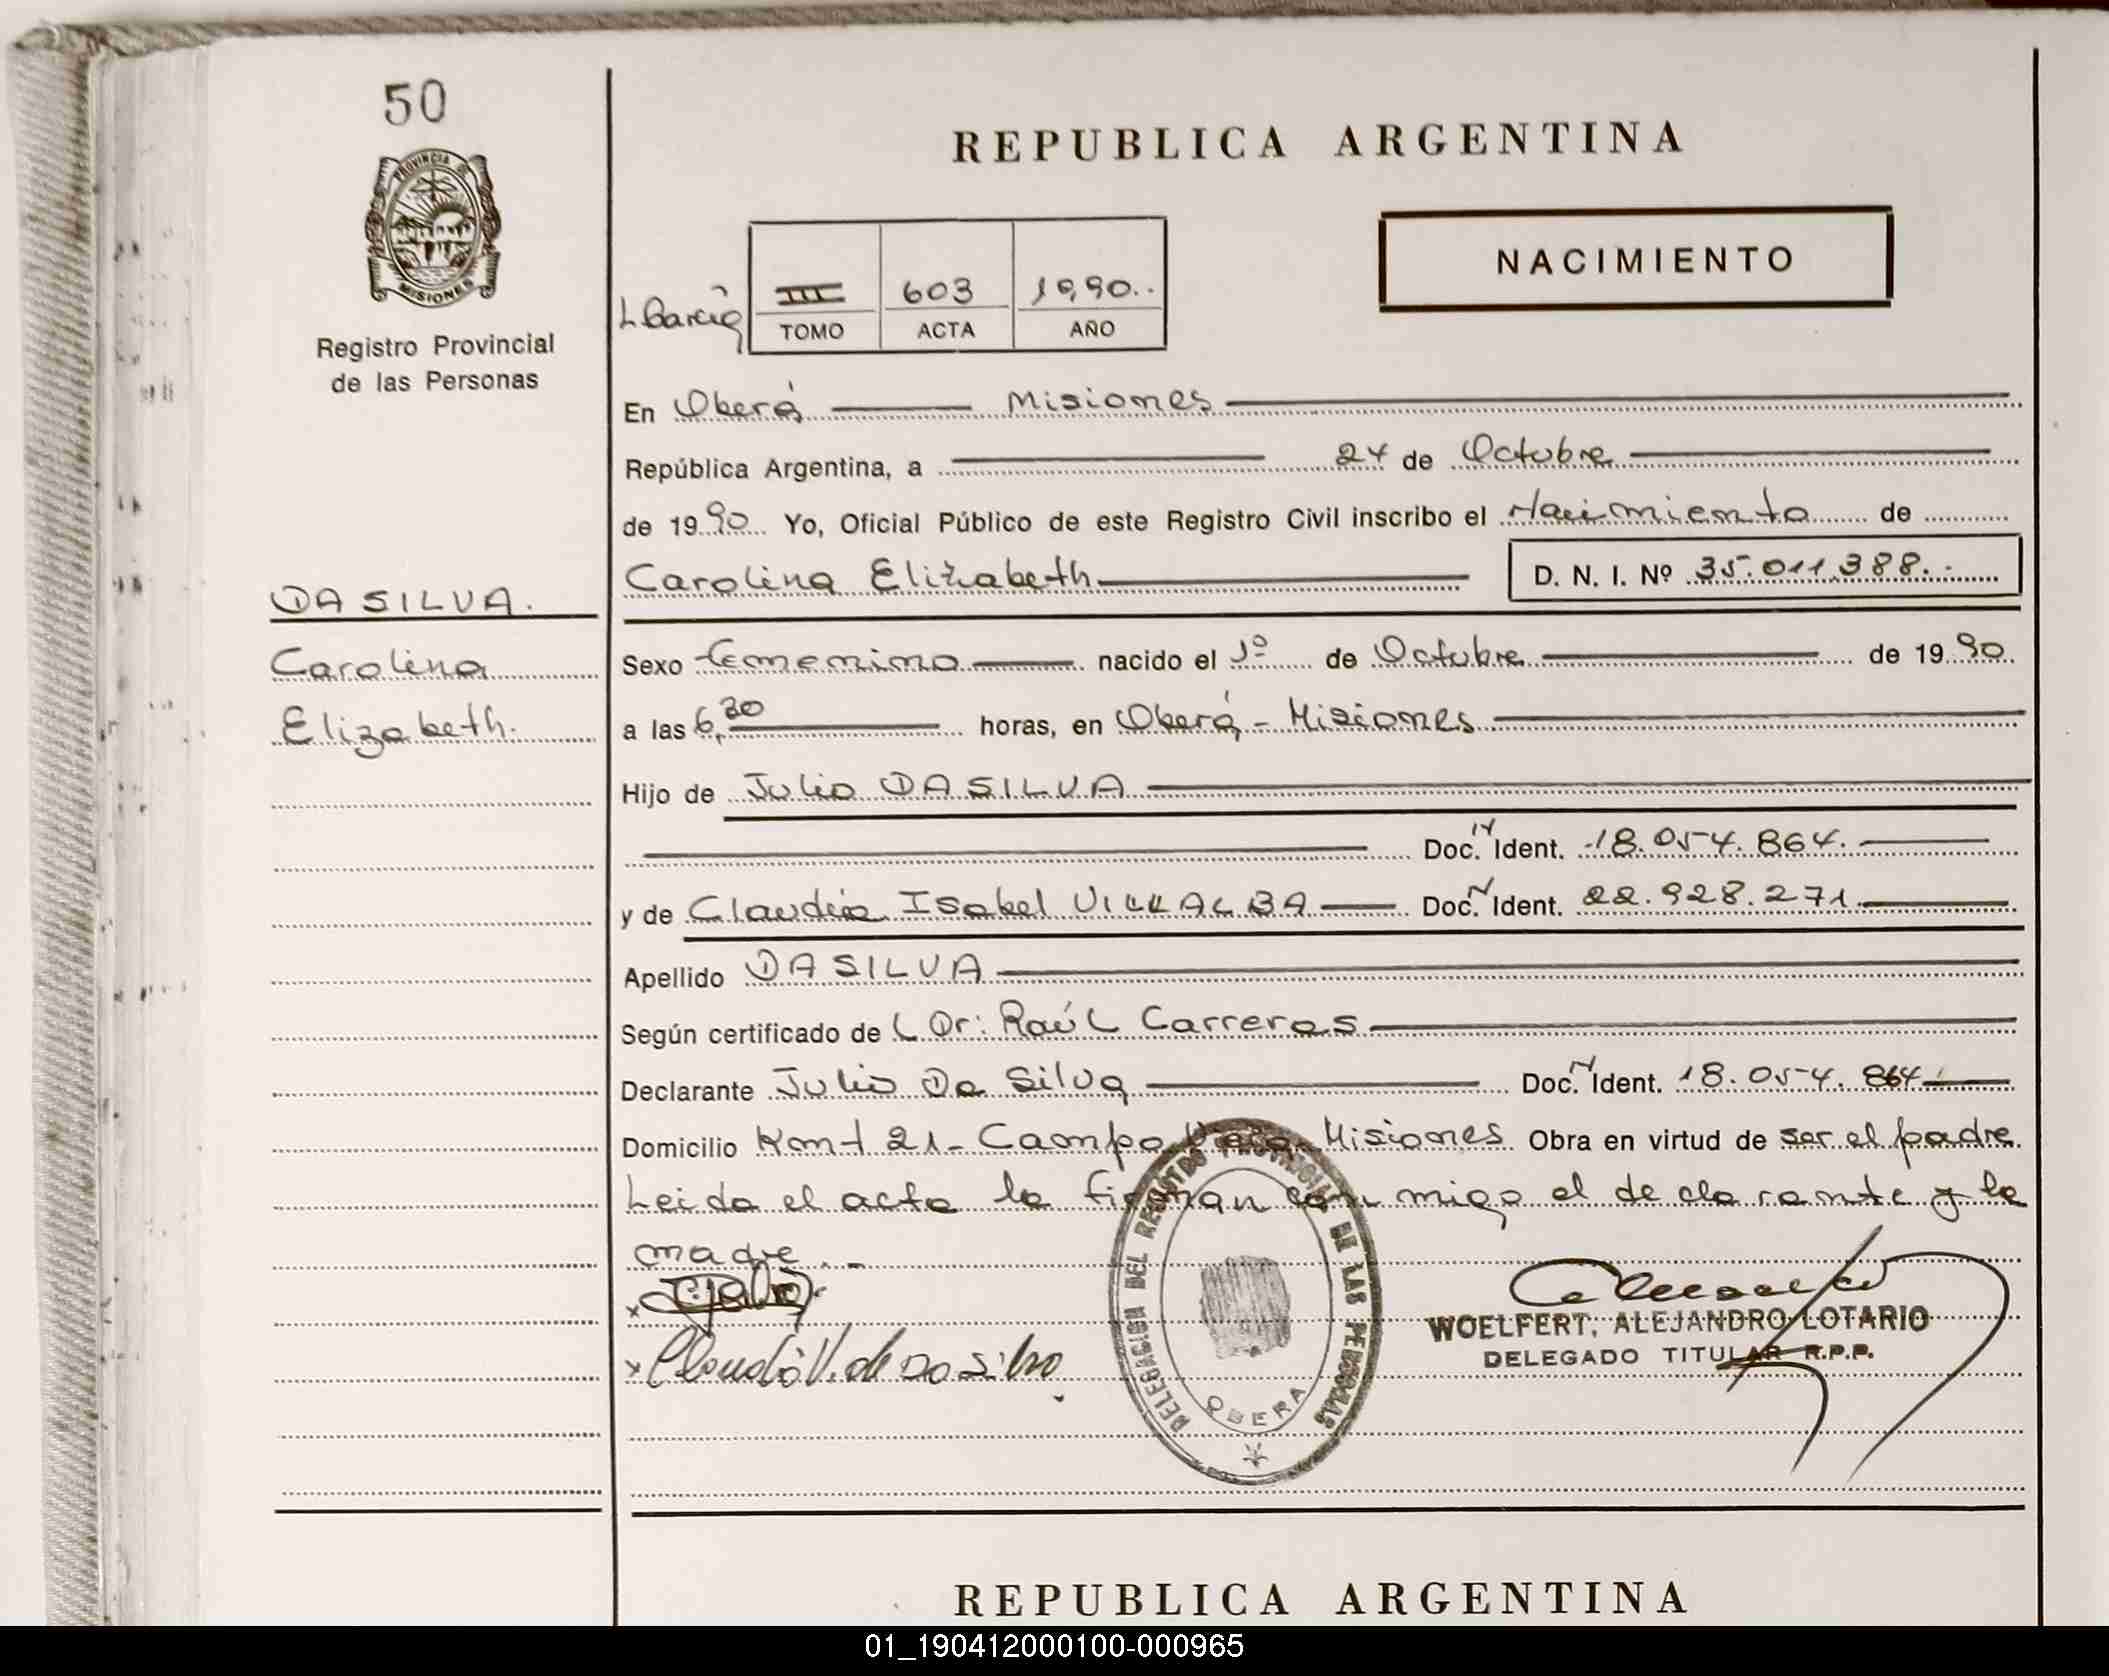 50
REPUBLICA ARGENTINA
PROVINCIA DE MISIONES
Registro Provincial
de las Personas
NACIMIENTO
L Garcia
III 603 1990..
TOMO ACTA AÑO
En Oberá Misiones
República Argentina, a 24 de Octubre
de 1990 Yo, Oficial Público de este Registro Civil inscribo el Nacimiento de
Carolina Elizabeth D. N. I. Nº 35.011.388.-
DA SILVA.
Carolina
Elizabeth.
Sexo femenino nacido el 1º de Octubre de 1990
a las 6,30 horas, en Oberá - Misiones
Hijo de Julio DA SILVA
Doc. N Ident. 18.054.864.
y de Claudia Isabel VILLALBA Doc. N Ident. 22.928.271.
Apellido DA SILVA
Según certificado del Dr: Raúl Carreras
Declarante Julio Da Silva Doc. N Ident. 18.054.864
Domicilio Km 21 - Campo Misiones Obra en virtud de ser el padre
Leida el acta la firman conmigo el declarante y la
madre.-
x
x Claudia V. de Da Silva
DELEGACION DEL REGISTRO PROVINCIAL DE LAS PERSONAS
OBERA
WOELFERT, ALEJANDRO LOTARIO
DELEGADO TITULAR R.P.P.
REPUBLICA ARGENTINA
01_190412000100-000965